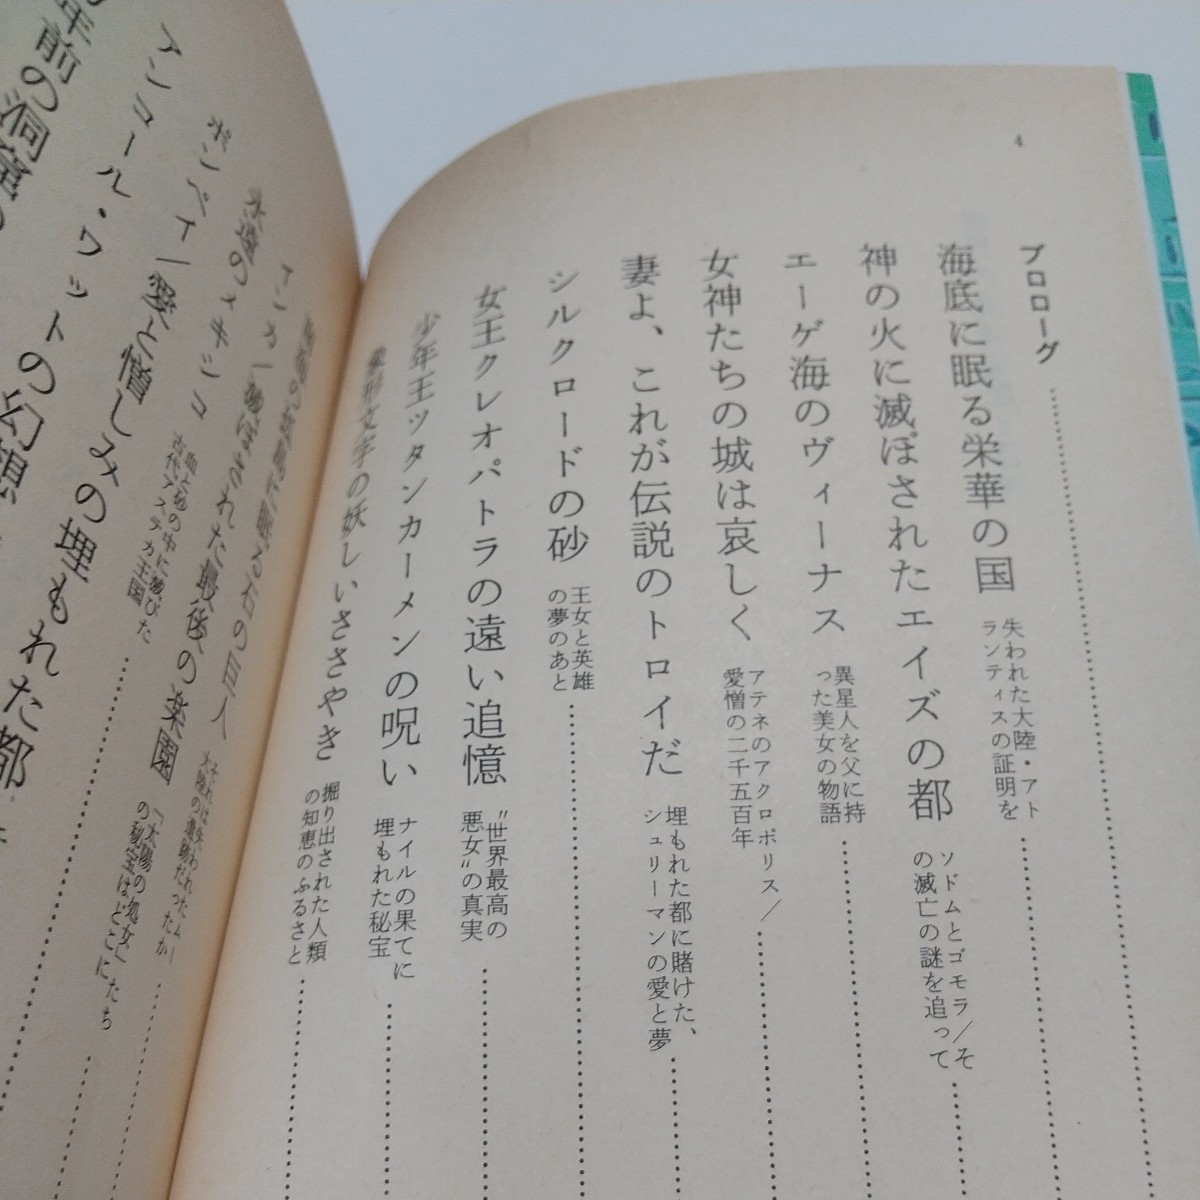 4
プロローグ
海底に眠る栄華の国
失われた大陸・アト
ランティスの証明を
神の火に滅ぼされたエイズの都
ソドムとゴモラ／そ
の滅亡の謎を追って
エーゲ海のヴィーナス
異星人を父に持
った美女の物語
女神たちの城は哀しく
アテネのアクロポリス／
愛憎の二千五百年
妻よ、これが伝説のトロイだ
埋もれた都に賭けた、
シュリーマンの愛と夢
シルクロードの砂
王女と英雄
の夢のあと
女王クレオパトラの遠い追憶
〝世界最高の
悪女〟の真実
少年王ツタンカーメンの呪い
ナイルの果てに
埋もれた秘宝
象形文字の妖しいささやき
掘り出された人類
の知恵のふるさと
に眠る石の巨人
それは失われたムー
大陸の遺跡だったか
インカ―滅ぼされた最後の楽園
「太陽の処女」たち
の秘宝はどこに
永遠のメキシコ
血と砂の中に滅びた
古代アステカ王国
ポンペイ―愛と憎しみの埋もれた都
アンコール・ワットの幻想
年前の洞窟の